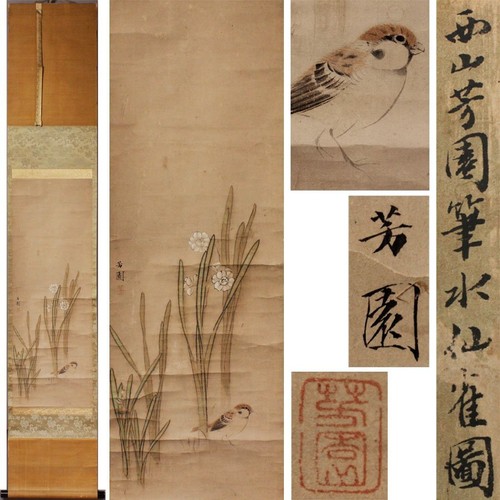 西山芳園筆水仙雀圖
芳
園
芳園